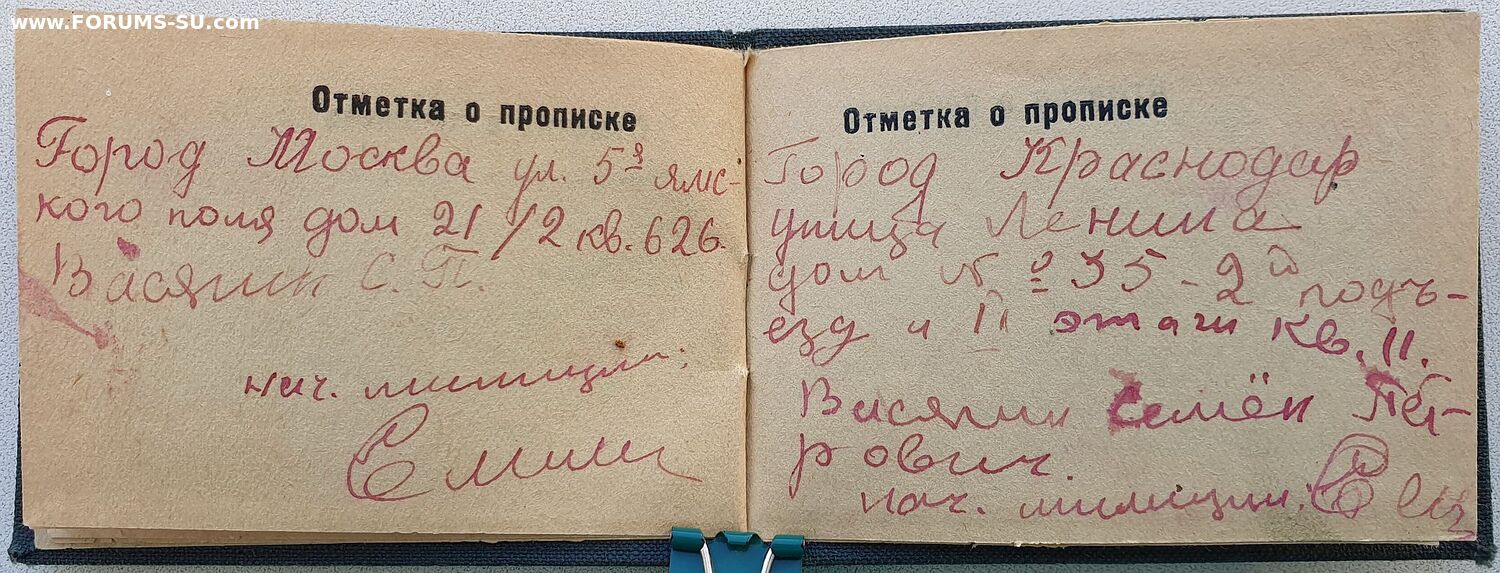 www.FORUMS-SU.com
Отметка о прописке
Город Москва ул. 5я ямс-
кого поля дом 21/2 кв. 626.
Васягин С. П.
нач. милиции:
Отметка о прописке
Город Краснодар
улица Ленина
дом № 35 - 2й подъ-
езд и II этаж кв. 11.
Васягин Семён Пёт-
рович.
нач. милиции: